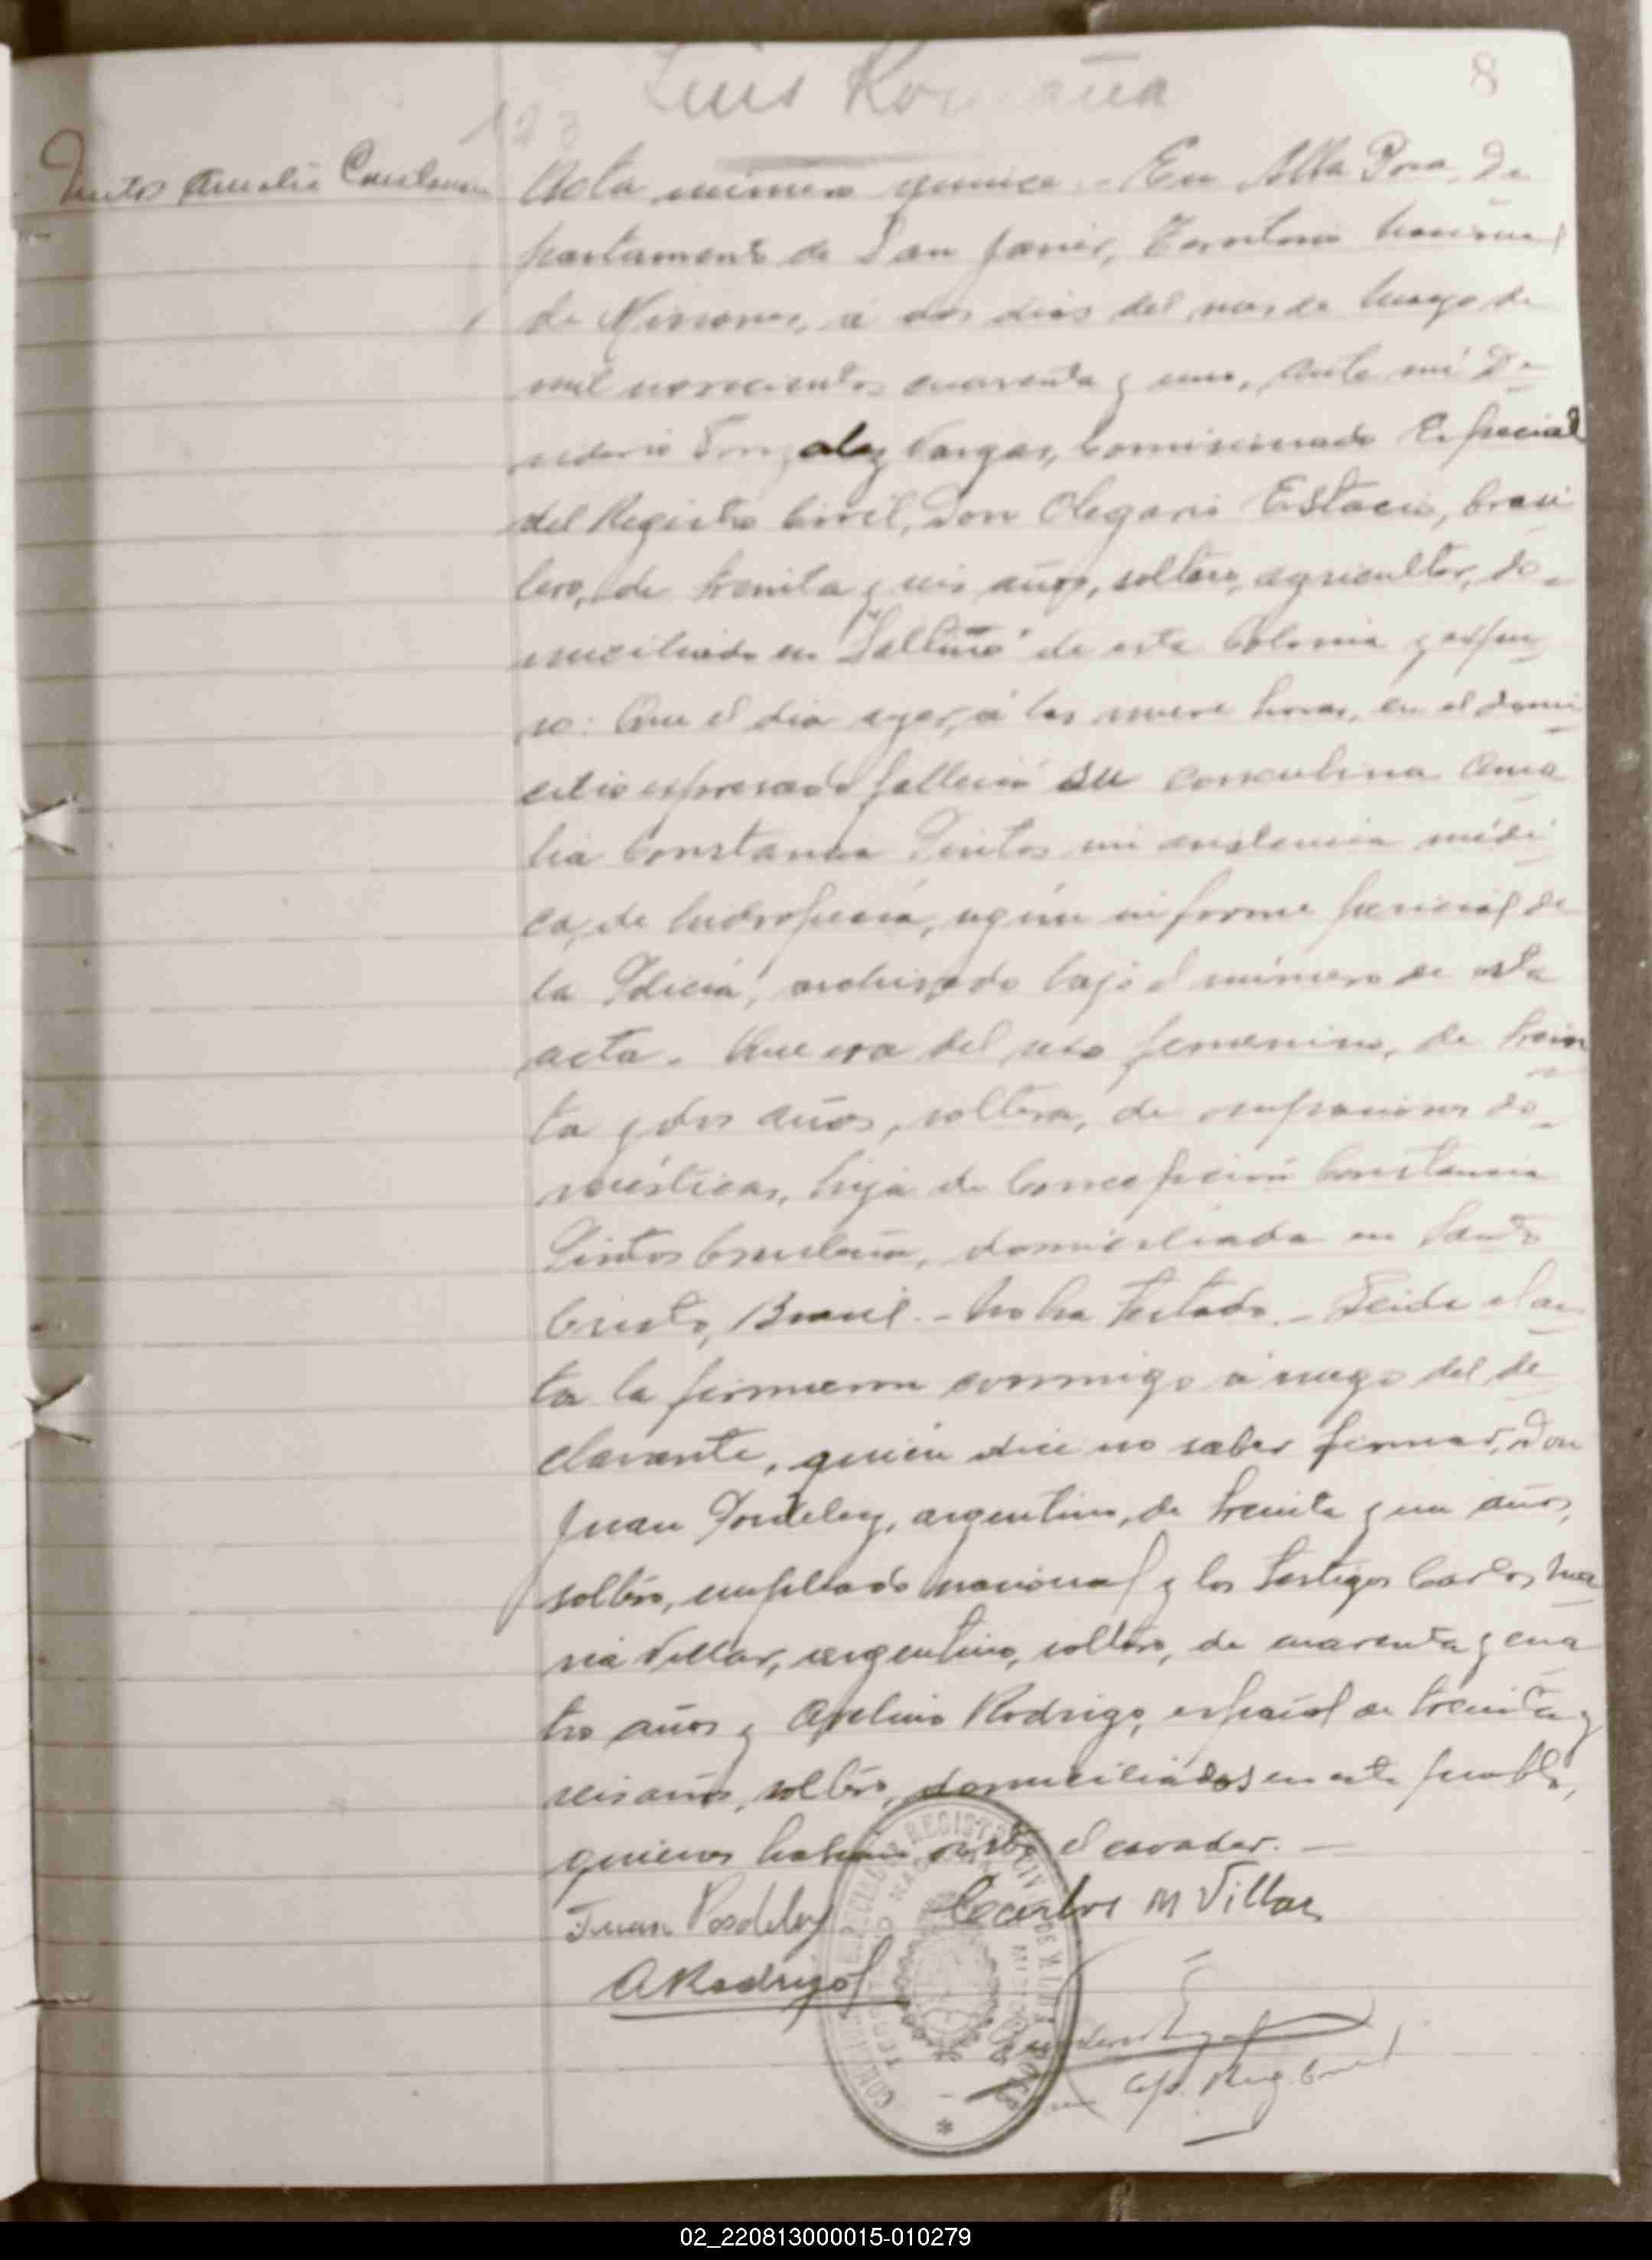 8
Luis
Acta número quince. - En Alba Posse, De
partamento de San Javier, Territorio Nacional
de Misiones, á dos dias del mes de Mayo de
mil novecientos cuarenta y uno, ante mi De
siderio González Vargas, Comisionado Especial
del Registro Civil, Don Olegario Estacio, brasi
lero, de treinta y seis años, soltero, agricultor, do-
miciliado en "Saltiño" de esta Colonia y expu
so: Que el dia ayer, á las nueve horas, en el domi
cilio expresado falleció su concubina Ama
lia Constancia Pintos sin asistencia médi
ca, de hidropesía, según informe pericial de
la Policia, archivado bajo el número de esta
acta. Que era del sexo femenino, de trein
ta y dos años, soltera, de ocupaciones do-
mésticas, hija de Concepción Constancia
Pintos brasilera, domiciliada en Santo
Cristo, Brasil. - No ha testado. - Leida el ac
ta la firmaron conmigo á ruego del de
clarante, quien dice no saber firmar, Don
Juan, argentino, de treinta y un años,
soltero, empleado nacional y los testigos Carlos Ma
ria Villar, argentino, soltero, de cuarenta y cua
tro años y Avelino Rodrigo, español de treinta y
seis años, soltero, domiciliados en este pueblo,
quienes habian visto el cadaver. -
Juan
Carlos M Villar
A Rodrigo
Reg. Civil
02_220813000015-010279